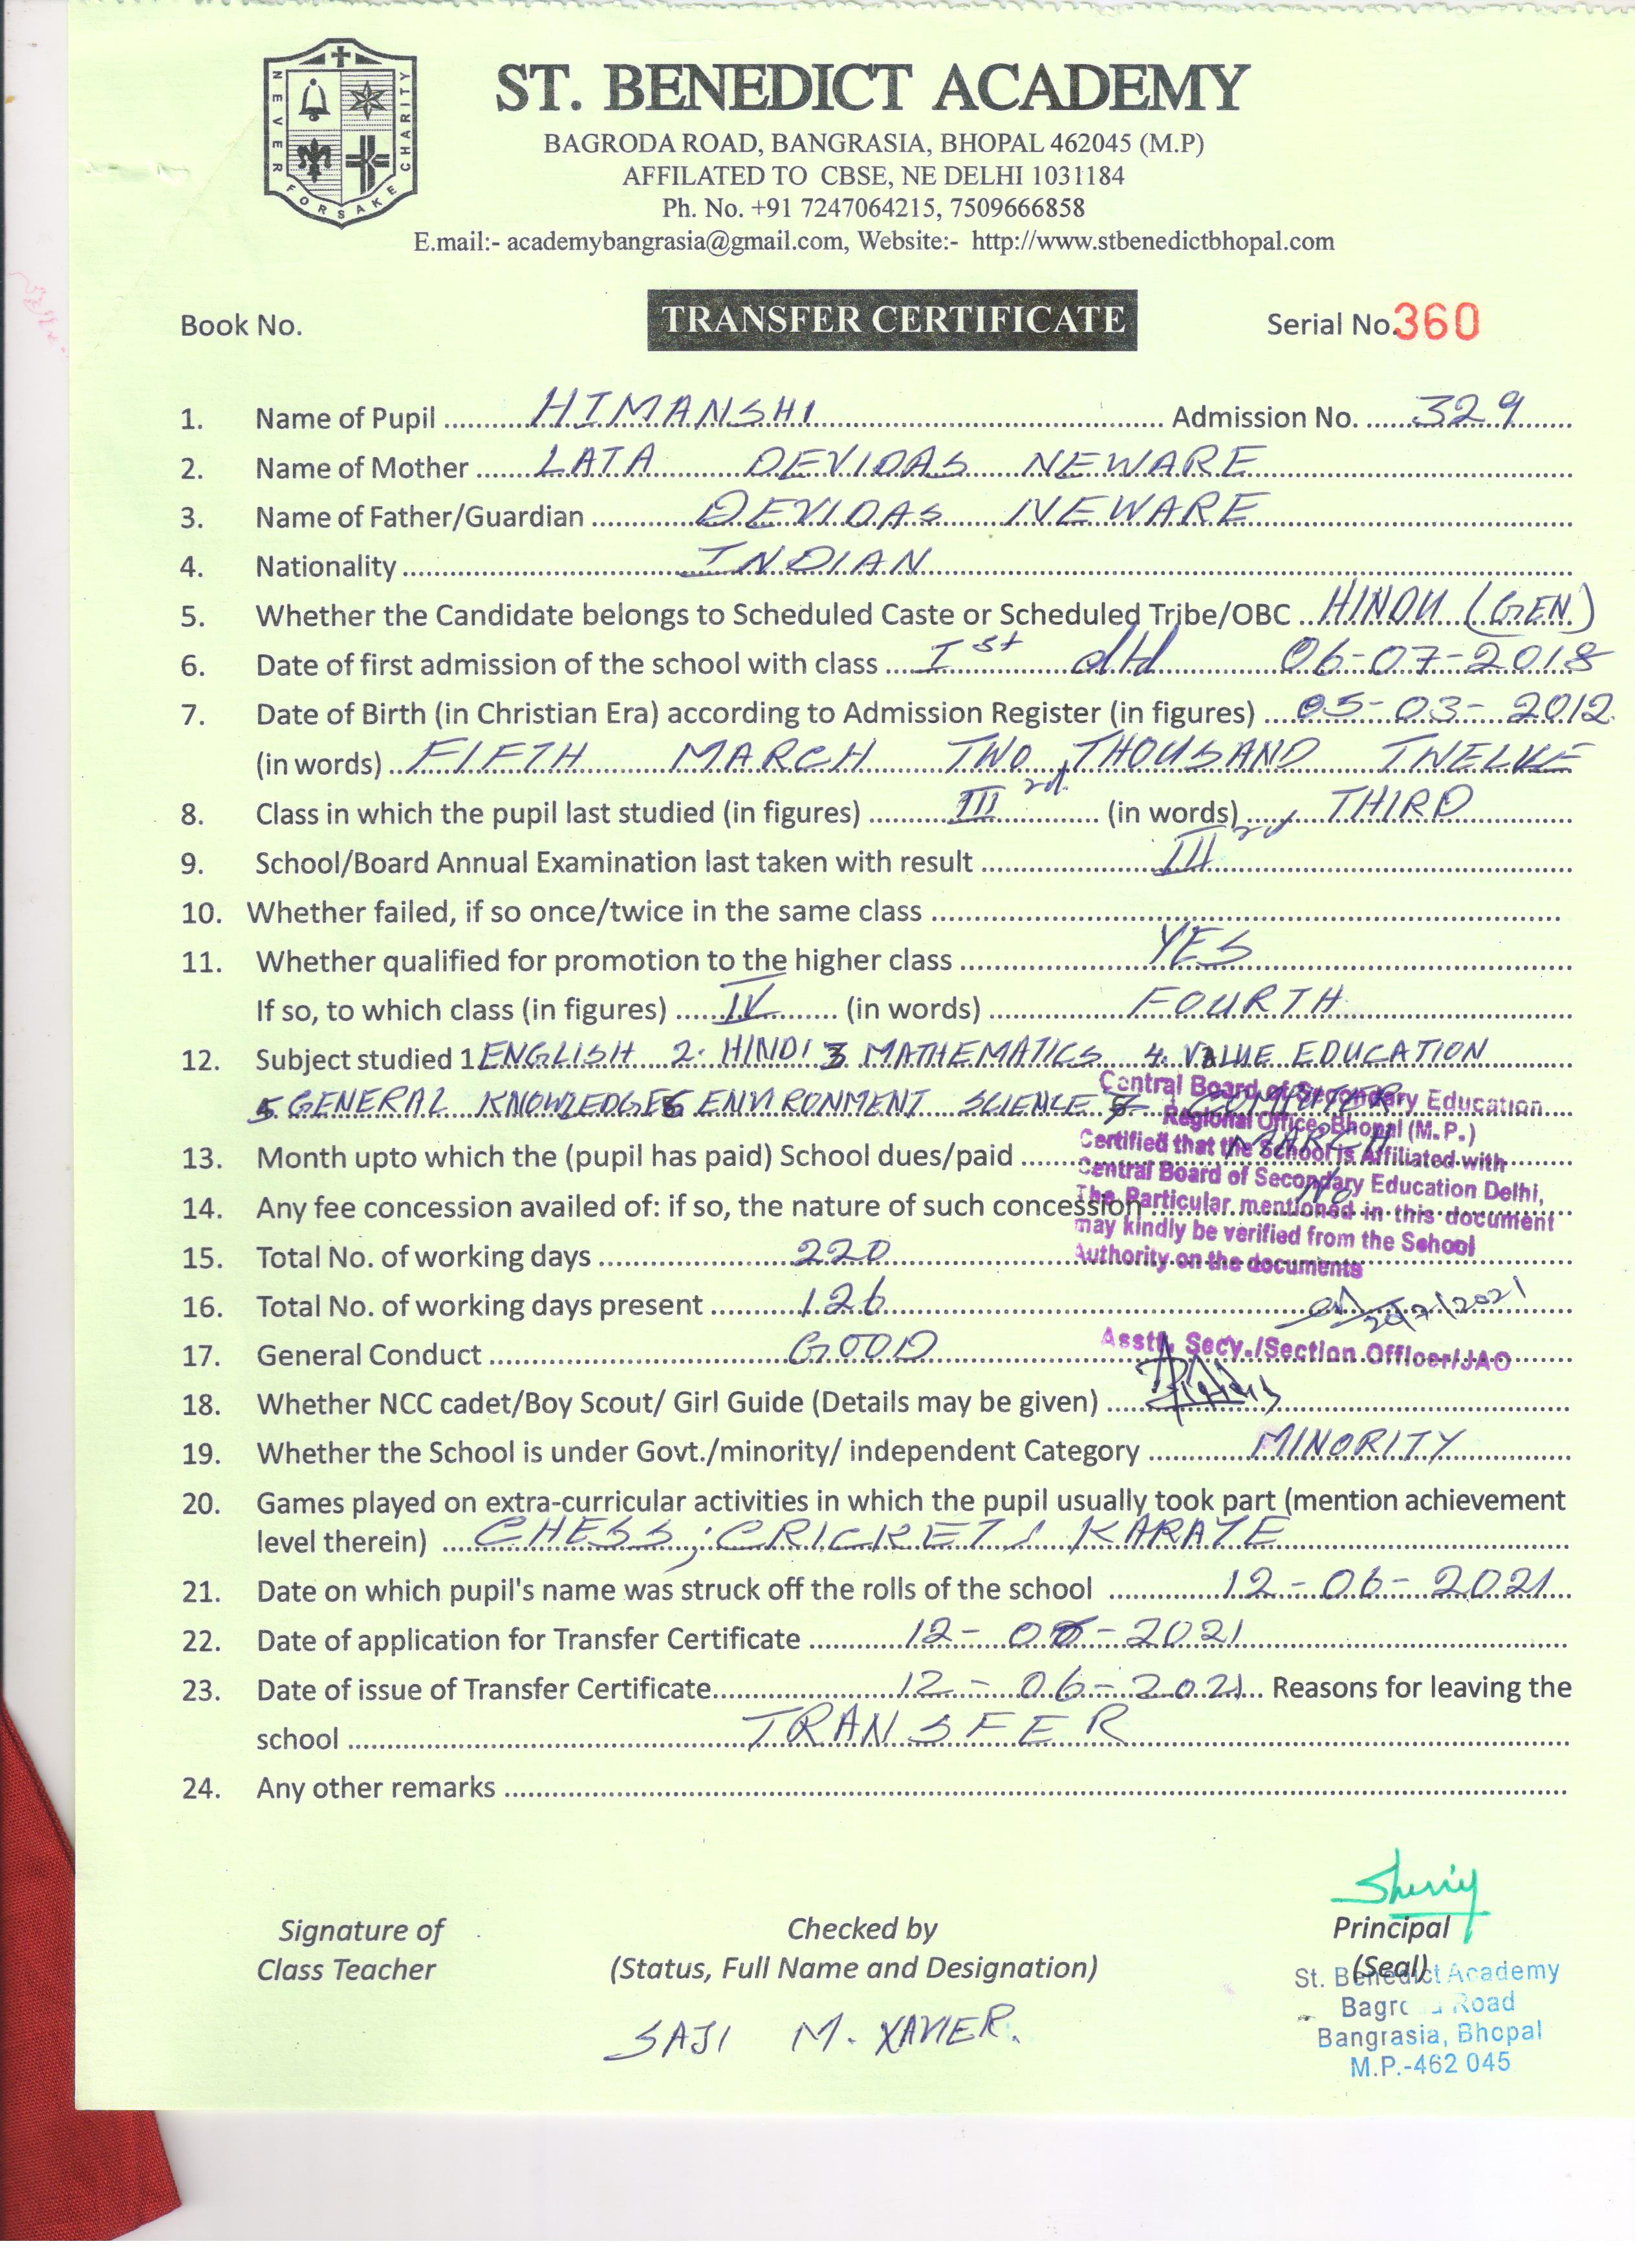 NEVER FORSAKE CHARITY
ST. BENEDICT ACADEMY
BAGRODA ROAD, BANGRASIA, BHOPAL 462045 (M.P)
AFFILATED TO CBSE, NE DELHI 1031184
Ph. No. +91 7247064215, 7509666858
E.mail:- academybangrasia@gmail.com, Website:- http://www.stbenedictbhopal.com
Book No. TRANSFER CERTIFICATE Serial No.360
1. Name of Pupil HIMANSHI Admission No. 329
2. Name of Mother LATA DEVIDAS NEWARE
3. Name of Father/Guardian DEVIDAS NEWARE
4. Nationality INDIAN
5. Whether the Candidate belongs to Scheduled Caste or Scheduled Tribe/OBC HINDU (GEN)
6. Date of first admission of the school with class Ist dtd 06-07-2018
7. Date of Birth (in Christian Era) according to Admission Register (in figures) 05-03-2012
(in words) FIFTH MARCH TWO THOUSAND TWELVE
8. Class in which the pupil last studied (in figures) IIIrd (in words) THIRD
9. School/Board Annual Examination last taken with result IIIrd
10. Whether failed, if so once/twice in the same class
11. Whether qualified for promotion to the higher class YES
If so, to which class (in figures) IV (in words) FOURTH
12. Subject studied 1 ENGLISH 2. HINDI 3 MATHEMATICS 4. VALUE EDUCATION
5. GENERAL KNOWLEDGE 6 ENVIRONMENT SCIENCE 7 COMPUTER
Central Board of Secondary Education
Regional Office, Bhopal (M.P.)
13. Month upto which the (pupil has paid) School dues/paid MARCH
Certified that the School is Affiliated with
Central Board of Secondary Education Delhi,
14. Any fee concession availed of: if so, the nature of such concession No
The Particular mentioned in this document
may kindly be verified from the School
15. Total No. of working days 220
Authority on the documents
16. Total No. of working days present 126
17. General Conduct GOOD
Asstt. Secy./Section Officer/JAO
18. Whether NCC cadet/Boy Scout/ Girl Guide (Details may be given)
19. Whether the School is under Govt./minority/ independent Category MINORITY
20. Games played on extra-curricular activities in which the pupil usually took part (mention achievement
level therein) CHESS, CRICKET, KARATE
21. Date on which pupil's name was struck off the rolls of the school 12-06-2021
22. Date of application for Transfer Certificate 12-06-2021
23. Date of issue of Transfer Certificate 12-06-2021 Reasons for leaving the
school TRANSFER
24. Any other remarks
Signature of Checked by Principal
Class Teacher (Status, Full Name and Designation) (Seal)
St. Benedict Academy
Road
SAJI M. XAVIER.
Bangrasia, Bhopal
M.P.-462 045